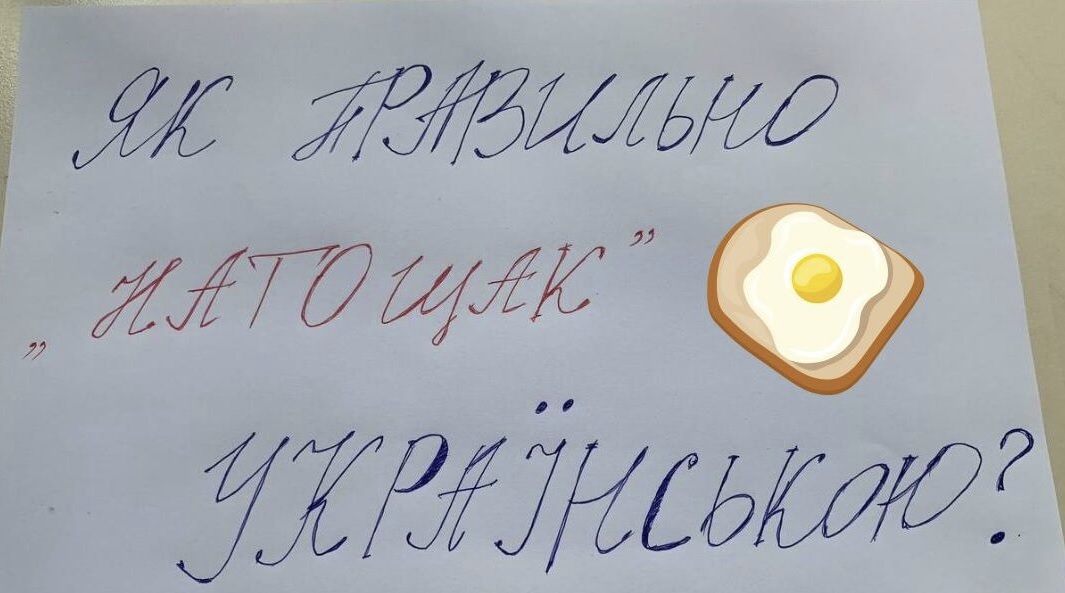 ЯК ПРАВИЛЬНО
„НАТОЩАК”
УКРАЇНСЬКОЮ?